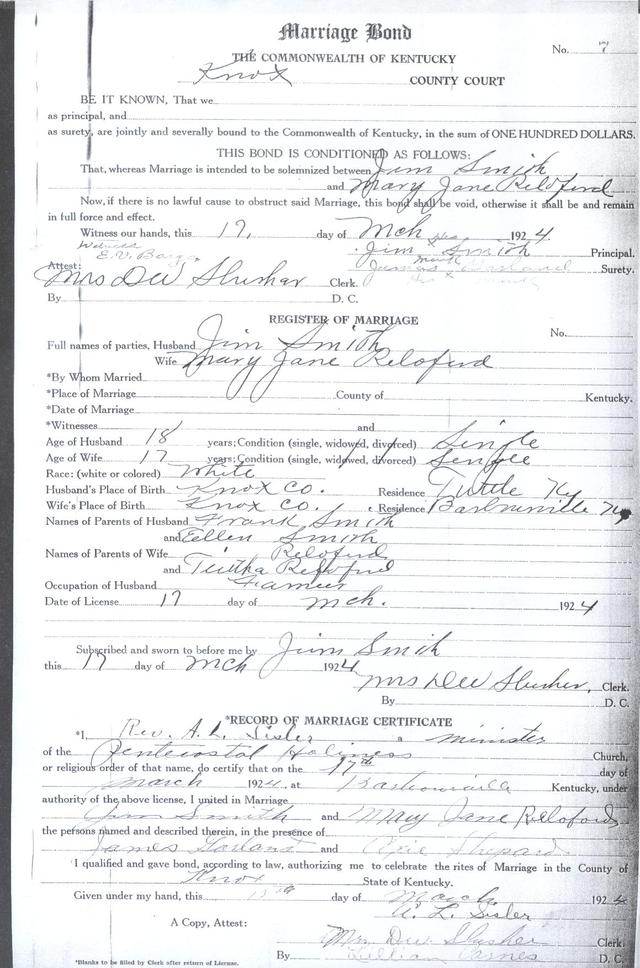 Marriage Bond
No. 7
THE COMMONWEALTH OF KENTUCKY
Knox COUNTY COURT
BE IT KNOWN, That we
as principal, and
as surety, are jointly and severally bound to the Commonwealth of Kentucky, in the sum of ONE HUNDRED DOLLARS.
THIS BOND IS CONDITIONED AS FOLLOWS:
That, whereas Marriage is intended to be solemnized between Jim Smith
and Mary Jane Reloford
Now, if there is no lawful cause to obstruct said Marriage, this bond shall be void, otherwise it shall be and remain
in full force and effect.
Witness our hands, this 17, day of Mch 1924.
Witness his
E.V. Jim x Smith Principal.
mark
Attest: James Garland Surety.
Mrs DW Slusher Clerk. his x mark
By D. C.
REGISTER OF MARRIAGE
No.
Full names of parties, Husband Jim Smith
Wife Mary Jane Reloford
*By Whom Married
*Place of Marriage County of Kentucky.
*Date of Marriage
*Witnesses and
Age of Husband 18 years; Condition (single, widowed, divorced) Single
Age of Wife 17 years; Condition (single, widowed, divorced) Single
Race: (white or colored) White
Husband's Place of Birth Knox Co. Residence Tuttle Ky
Wife's Place of Birth Knox Co. Residence Barbourville Ky
Names of Parents of Husband Frank Smith
and Eellen Smith
Names of Parents of Wife Reloford
and Reloford
Occupation of Husband Farmer
Date of License 17 day of mch. 1924
Subscribed and sworn to before me by Jim Smith
this 17 day of Mch 1924
Mrs DW Slusher, Clerk.
By D. C.
*RECORD OF MARRIAGE CERTIFICATE
*I, Rev. A. L. Sisler a minister
of the Pentecostal Holiness Church,
or religious order of that name, do certify that on the 17th day of
March 1924, at Barbourville Kentucky, under
authority of the above license, I united in Marriage
Jim Smith and Mary Jane Relloford
the persons named and described therein, in the presence of
James Garland and Shepard
I qualified and gave bond, according to law, authorizing me to celebrate the rites of Marriage in the County of
Knox State of Kentucky.
Given under my hand, this day of March 1924
A. L. Sisler
A Copy, Attest:
Mrs. DW Slusher Clerk.
By William D. C.
*Blanks to be filled by Clerk after return of License.